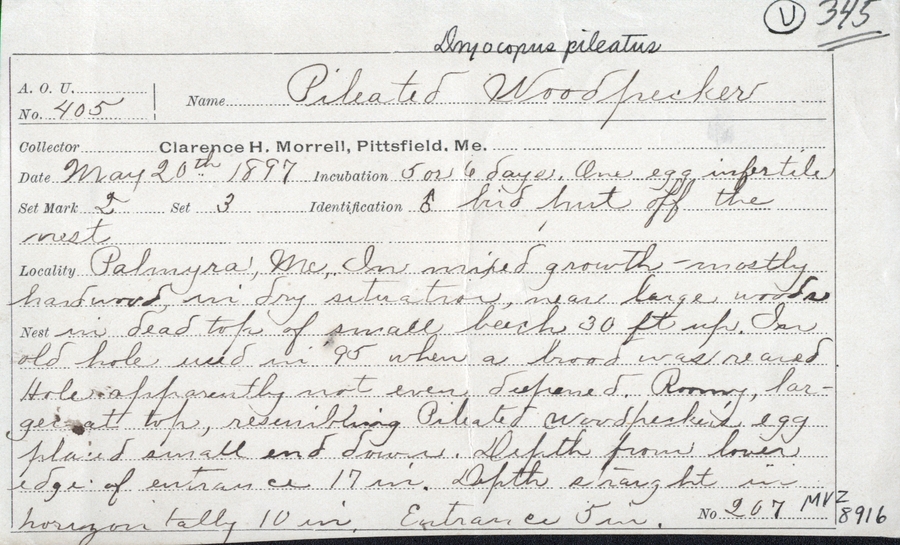 U 345
Dryocopus pileatus
A. O. U. No. 405 Name Pileated Woodpecker
Collector Clarence H. Morrell, Pittsfield, Me.
Date May 20th 1897 Incubation 5 or 6 days. One egg infertile
Set Mark 2 Set 3 Identification bird hurt off the
nest
Locality Palmyra, Me, In mixed growth - mostly
hardwood in dry situation, near large woods
Nest in dead top of small beech 30 ft up. In
old hole used in 95 when a brood was reared
Hole apparently not even deepened. Roomy, lar-
ger at top, resembling Pileated Woodpecker's egg
placed small end down. Depth from lower
edge of entrance 17 in. Depth straight in
horizontally 10 in. Entrance 5 in. No 207 MVZ
8916